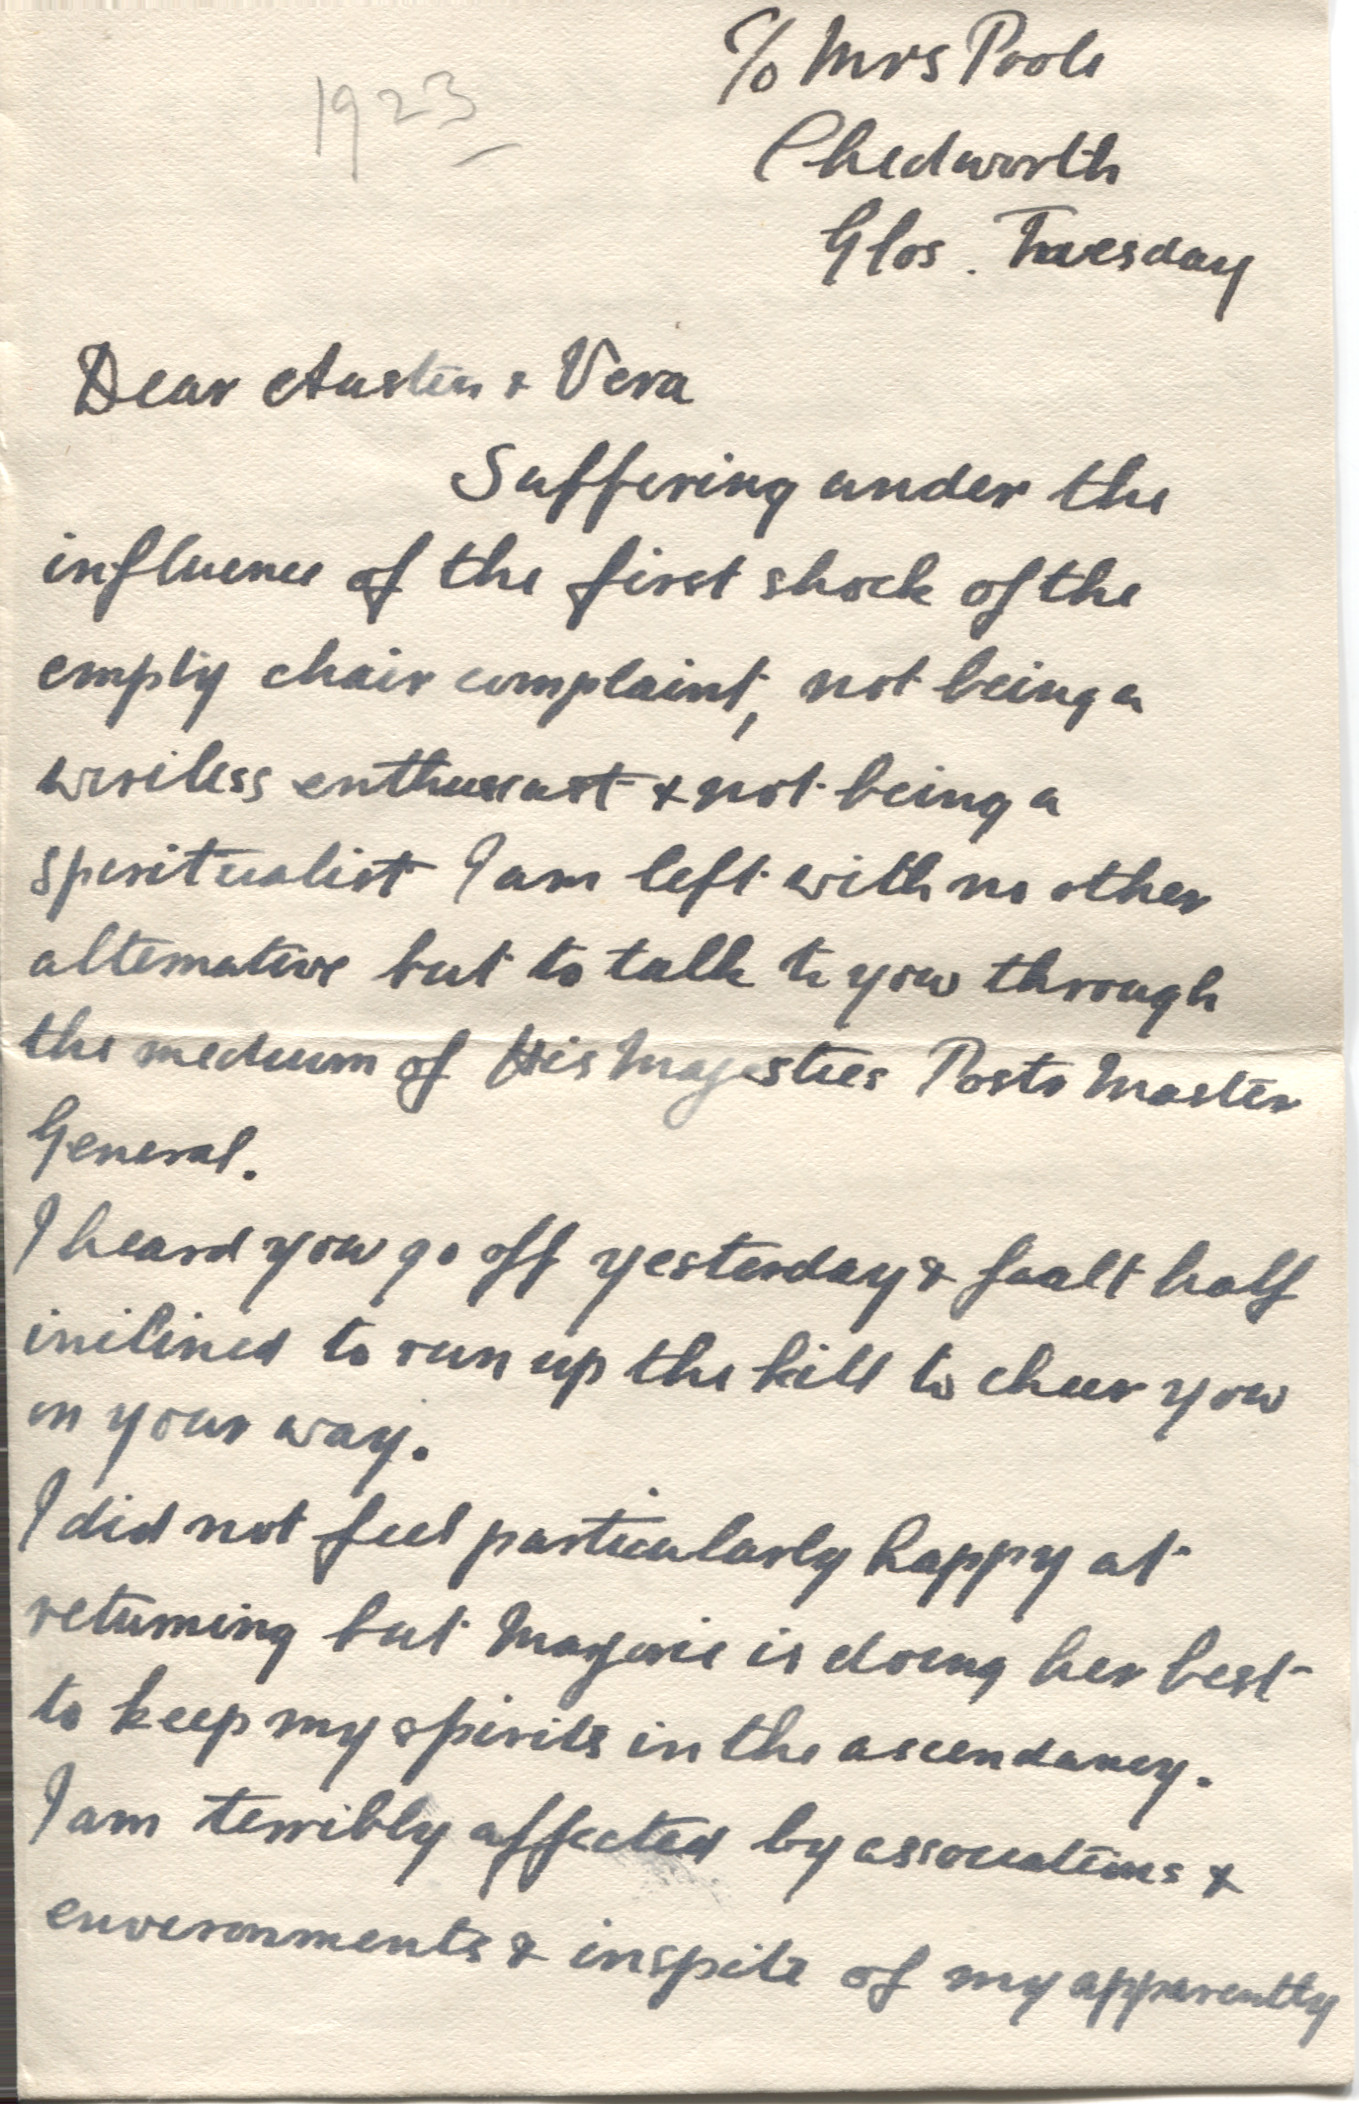 1923
C/o Mrs Poole
Chedworth
Glos. Tuesday
Dear Austin & Vera
Suffering under the
influence of the first shock of the
empty chair complaint, not being a
wireless enthusiast & not being a
spiritualist I am left with no other
alternative but to talk to you through
the medium of His Majesties Post Master
General.
I heard you go off yesterday & faalt half
inclined to run up the hill to cheer you
on your way.
I did not feel particularly happy at
returning but Marjorie is doing her best
to keep my spirits in the ascendancy.
I am terribly affected by associations &
environments & inspite of my apparently